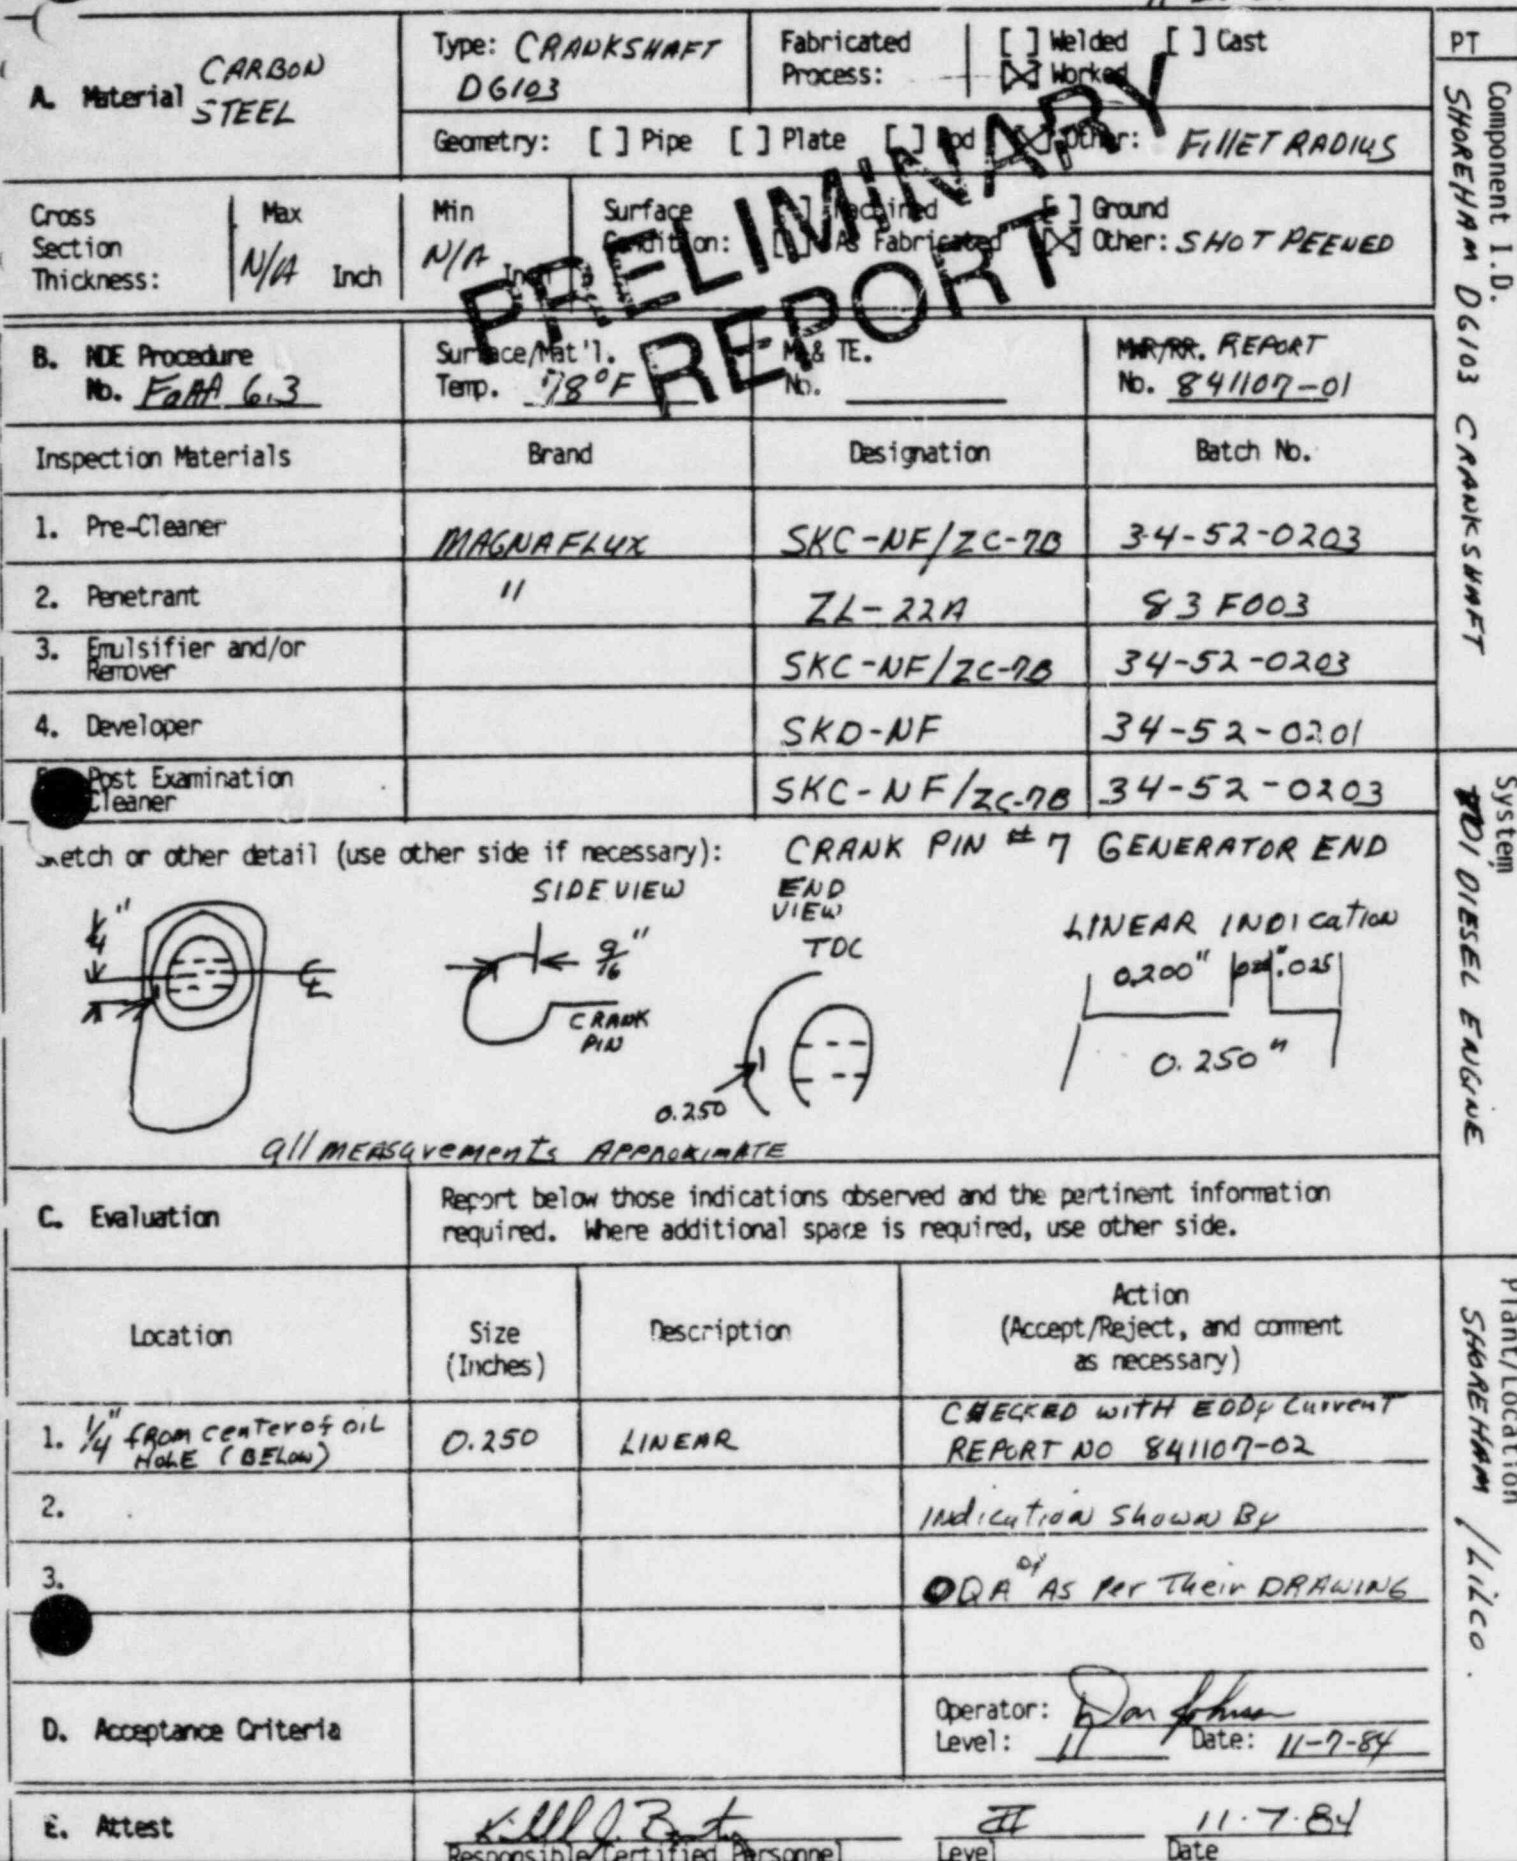 A. Material CARBON STEEL
Type: CRANKSHAFT
DG103
Fabricated Process: [ ] Welded [ ] Cast
[X] Worked
Geometry: [ ] Pipe [ ] Plate [ ] Rod [X] Other: FILLET RADIUS
Cross Section Thickness: Max N/A Inch Min N/A Inch
Surface Condition: [ ] Machined [ ] Ground
[ ] As Fabricated [X] Other: SHOT PEENED
PRELIMINARY
REPORT
B. NDE Procedure No. FaAA 6.3
Surface/Mat'l. Temp. 78°F
M & TE. No.
MWR/RR. REPORT No. 841107-01
Inspection Materials Brand Designation Batch No.
1. Pre-Cleaner MAGNAFLUX SKC-NF/ZC-7B 34-52-0203
2. Penetrant " ZL-22A 83F003
3. Emulsifier and/or Remover SKC-NF/ZC-7B 34-52-0203
4. Developer SKD-NF 34-52-0201
Post Examination Cleaner SKC-NF/ZC-7B 34-52-0203
Sketch or other detail (use other side if necessary): CRANK PIN # 7 GENERATOR END
1/4"
CL
SIDE VIEW
9/16"
CRANK PIN
END VIEW
TDC
0.250
LINEAR INDICATION
0.200" .025
0.250"
all MEASurements APPROXIMATE
C. Evaluation
Report below those indications observed and the pertinent information
required. Where additional space is required, use other side.
Location Size (Inches) Description Action
(Accept/Reject, and comment
as necessary)
1. 1/4" from center of OIL HOLE (BELOW) 0.250 LINEAR CHECKED WITH EDDY Current
REPORT NO 841107-02
2. Indication Shown By
3. OQA AS Per Their DRAWING
D. Acceptance Criteria
Operator: Don Johnson
Level: II Date: 11-7-84
E. Attest
II 11-7-84
Responsible/Certified Personnel Level Date
PT
Component I.D.
SHOREHAM DG103 CRANKSHAFT
System
TDI DIESEL ENGINE
Plant/Location
SHOREHAM / LILCO.